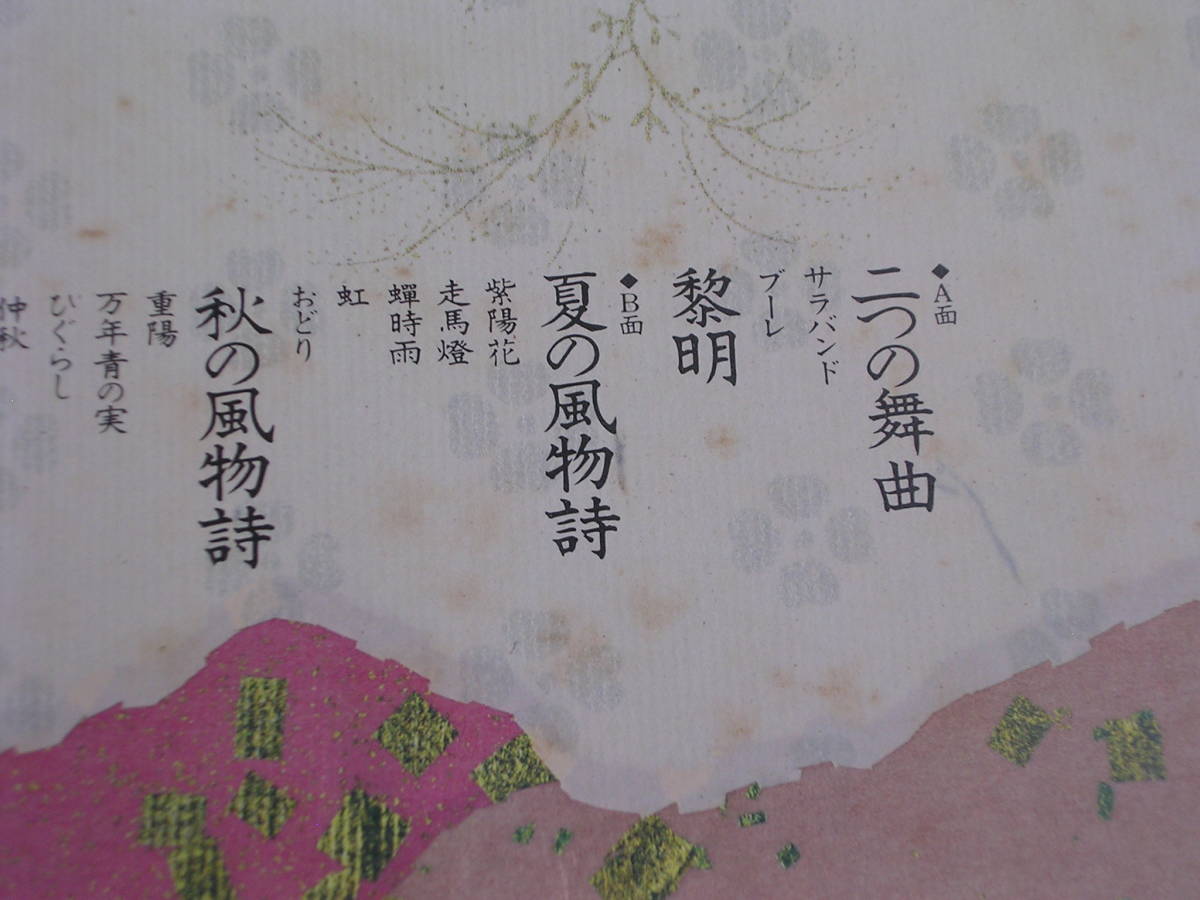 ◆A面
二つの舞曲
サラバンド
ブーレ
黎明
◆B面
夏の風物詩
紫陽花
走馬燈
蟬時雨
虹
おどり
秋の風物詩
重陽
万年青の実
ひぐらし
仲秋